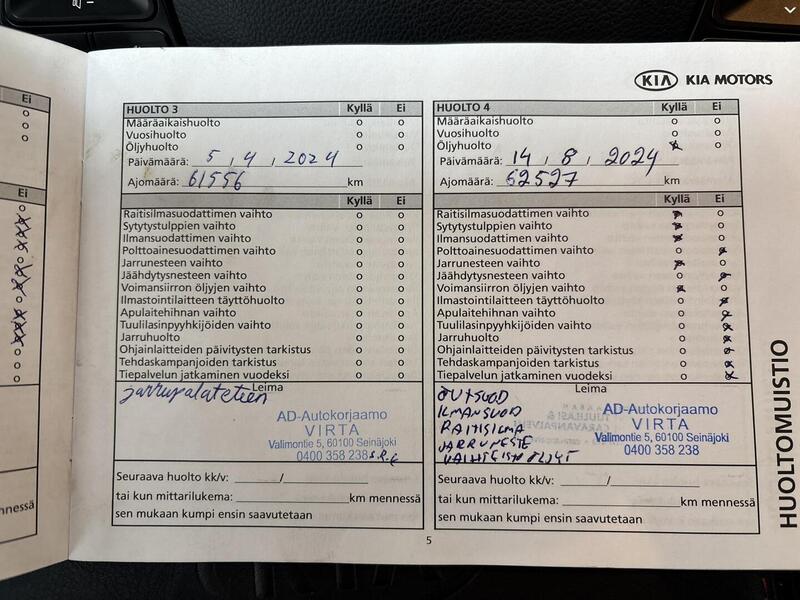 KIA KIA MOTORS
Ei
Ei
HUOLTO 3 Kyllä Ei
Määräaikaishuolto o o
Vuosihuolto o o
Öljyhuolto o o
Päivämäärä: 5 , 4 , 2024
Ajomäärä: 61556 km
Kyllä Ei
Raitisilmasuodattimen vaihto o o
Sytytystulppien vaihto o o
Ilmansuodattimen vaihto o o
Polttoainesuodattimen vaihto o o
Jarrunesteen vaihto o o
Jäähdytysnesteen vaihto o o
Voimansiirron öljyjen vaihto o o
Ilmastointilaitteen täyttöhuolto o o
Apulaitehihnan vaihto o o
Tuulilasinpyyhkijöiden vaihto o o
Jarruhuolto o o
Ohjainlaitteiden päivitysten tarkistus o o
Tehdaskampanjoiden tarkistus o o
Tiepalvelun jatkaminen vuodeksi o o
Leima
AD-Autokorjaamo
VIRTA
Valimontie 5, 60100 Seinäjoki
0400 358 238
Seuraava huolto kk/v: /
tai kun mittarilukema: km mennessä
sen mukaan kumpi ensin saavutetaan
HUOLTO 4 Kyllä Ei
Määräaikaishuolto o o
Vuosihuolto o o
Öljyhuolto x o
Päivämäärä: 14 , 8 , 2024
Ajomäärä: 62527 km
Kyllä Ei
Raitisilmasuodattimen vaihto x o
Sytytystulppien vaihto x o
Ilmansuodattimen vaihto x o
Polttoainesuodattimen vaihto o x
Jarrunesteen vaihto x o
Jäähdytysnesteen vaihto o x
Voimansiirron öljyjen vaihto x o
Ilmastointilaitteen täyttöhuolto o x
Apulaitehihnan vaihto o x
Tuulilasinpyyhkijöiden vaihto o x
Jarruhuolto o x
Ohjainlaitteiden päivitysten tarkistus o x
Tehdaskampanjoiden tarkistus o x
Tiepalvelun jatkaminen vuodeksi o x
Leima
ILMANSUOD
RAITISILMA
JARRUNESTE
AD-Autokorjaamo
VIRTA
Valimontie 5, 60100 Seinäjoki
0400 358 238
Seuraava huolto kk/v: /
tai kun mittarilukema: km mennessä
sen mukaan kumpi ensin saavutetaan
5
HUOLTOMUISTIO